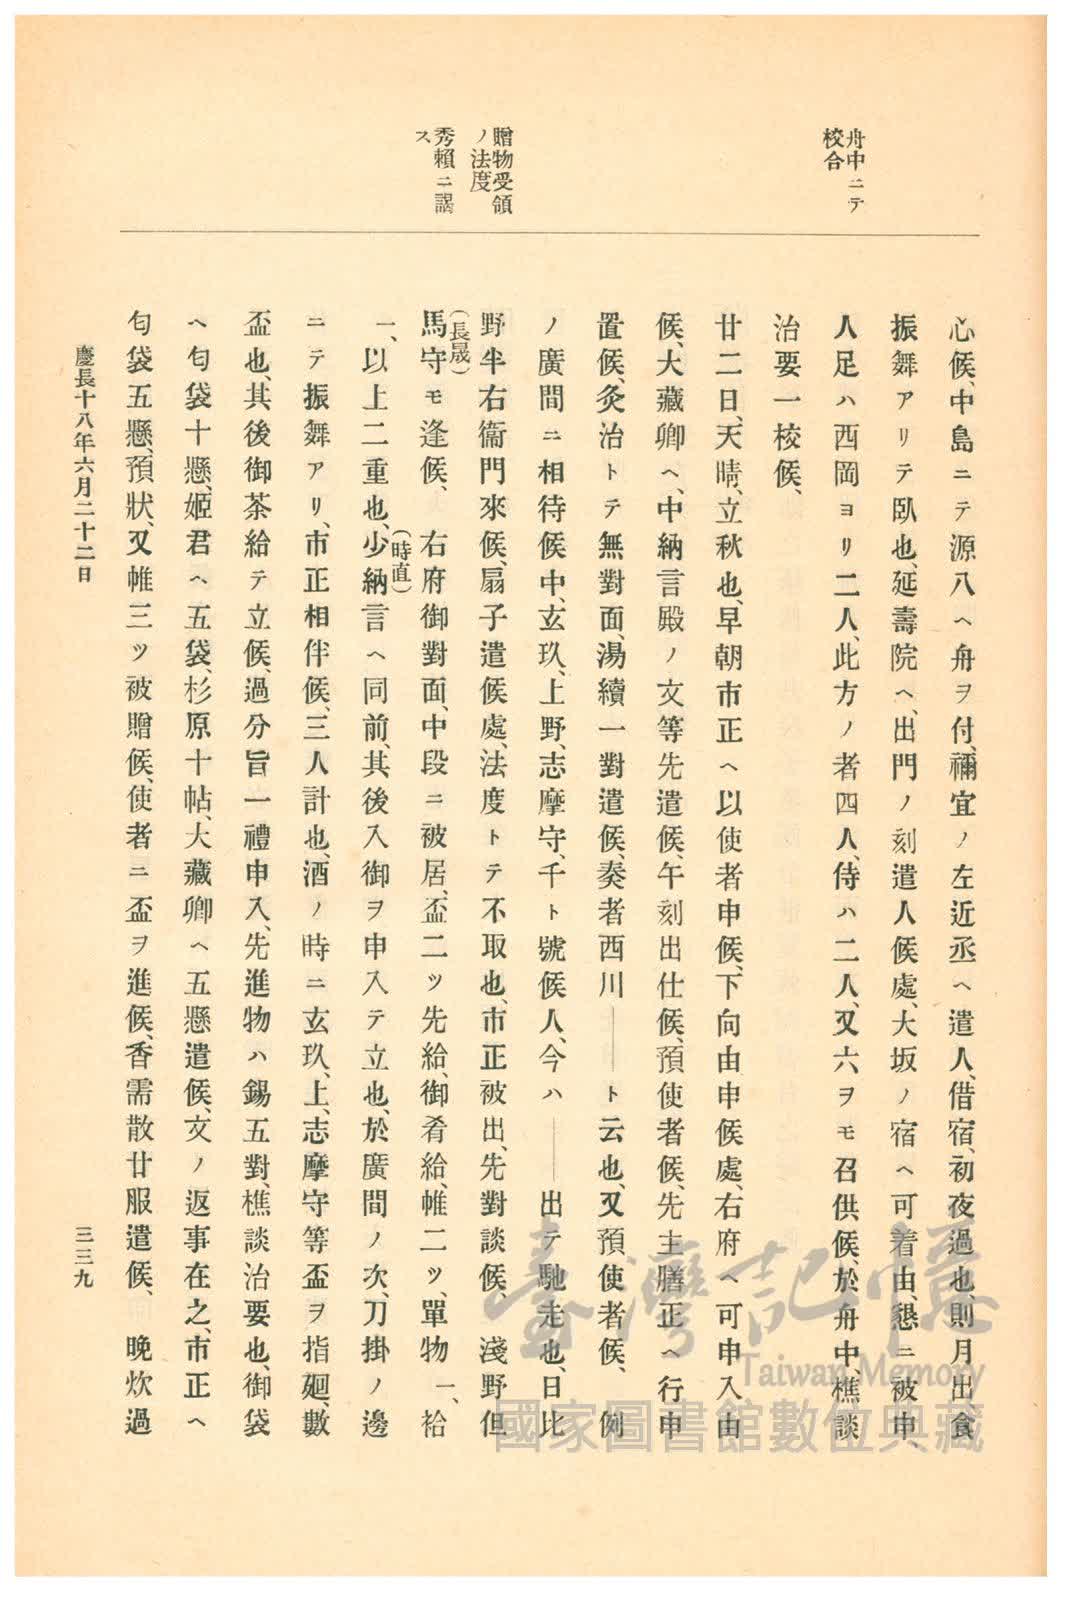 舟中ニテ
校合
贈物受領
ノ法度
秀賴ニ謁
ス
心候、中島ニテ源八ヘ舟ヲ付、禰宜ノ左近丞ヘ遣人、借宿、初夜過也、則月出食
振舞アリテ臥也、延壽院ヘ、出門ノ刻遣人候處、大坂ノ宿ヘ可着由、懇ニ被申、
人足ハ西岡ヨリ二人、此方ノ者四人、侍ハ二人、又六ヲモ召供候、於舟中、樵談
治要一校候、
廿二日、天晴、立秋也、早朝市正ヘ以使者申候、下向由申候處、右府ヘ可申入由
候、大藏卿ヘ、中納言殿ノ文等先遣候、午刻出仕候、預使者候、先主膳正ヘ行申
置候、灸治トテ無對面、湯續一對遣候、奏者西川――ト云也、又預使者候、例
ノ廣間ニ相待候中、玄玖、上野、志摩守、千ト號候人、今ハ――出テ馳走也、日比
野半右衞門來候、扇子遣候處、法度トテ不取也、市正被出、先對談候、淺野但
(長晟)
馬守モ逢候、右府御對面、中段ニ被居、盃二ツ先給、御肴給、帷二ツ、單物一、袷
(時直)
一、以上二重也、少納言ヘ同前、其後入御ヲ申入テ立也、於廣間ノ次、刀掛ノ邊
ニテ振舞アリ、市正相伴候、三人計也、酒ノ時ニ玄玖、上、志摩守等盃ヲ指廻、數
盃也、其後御茶給テ立候、過分旨一禮申入、先進物ハ錫五對、樵談治要也、御袋
ヘ匂袋十懸、姬君ヘ五袋、杉原十帖、大藏卿ヘ五懸遣候、文ノ返事在之、市正ヘ
匂袋五懸、預狀、又帷三ツ被贈候、使者ニ盃ヲ進候、香需散廿服遣候、晚炊過
慶長十八年六月二十二日
三三九
臺灣記憶
Taiwan Memory
國家圖書館數位典藏